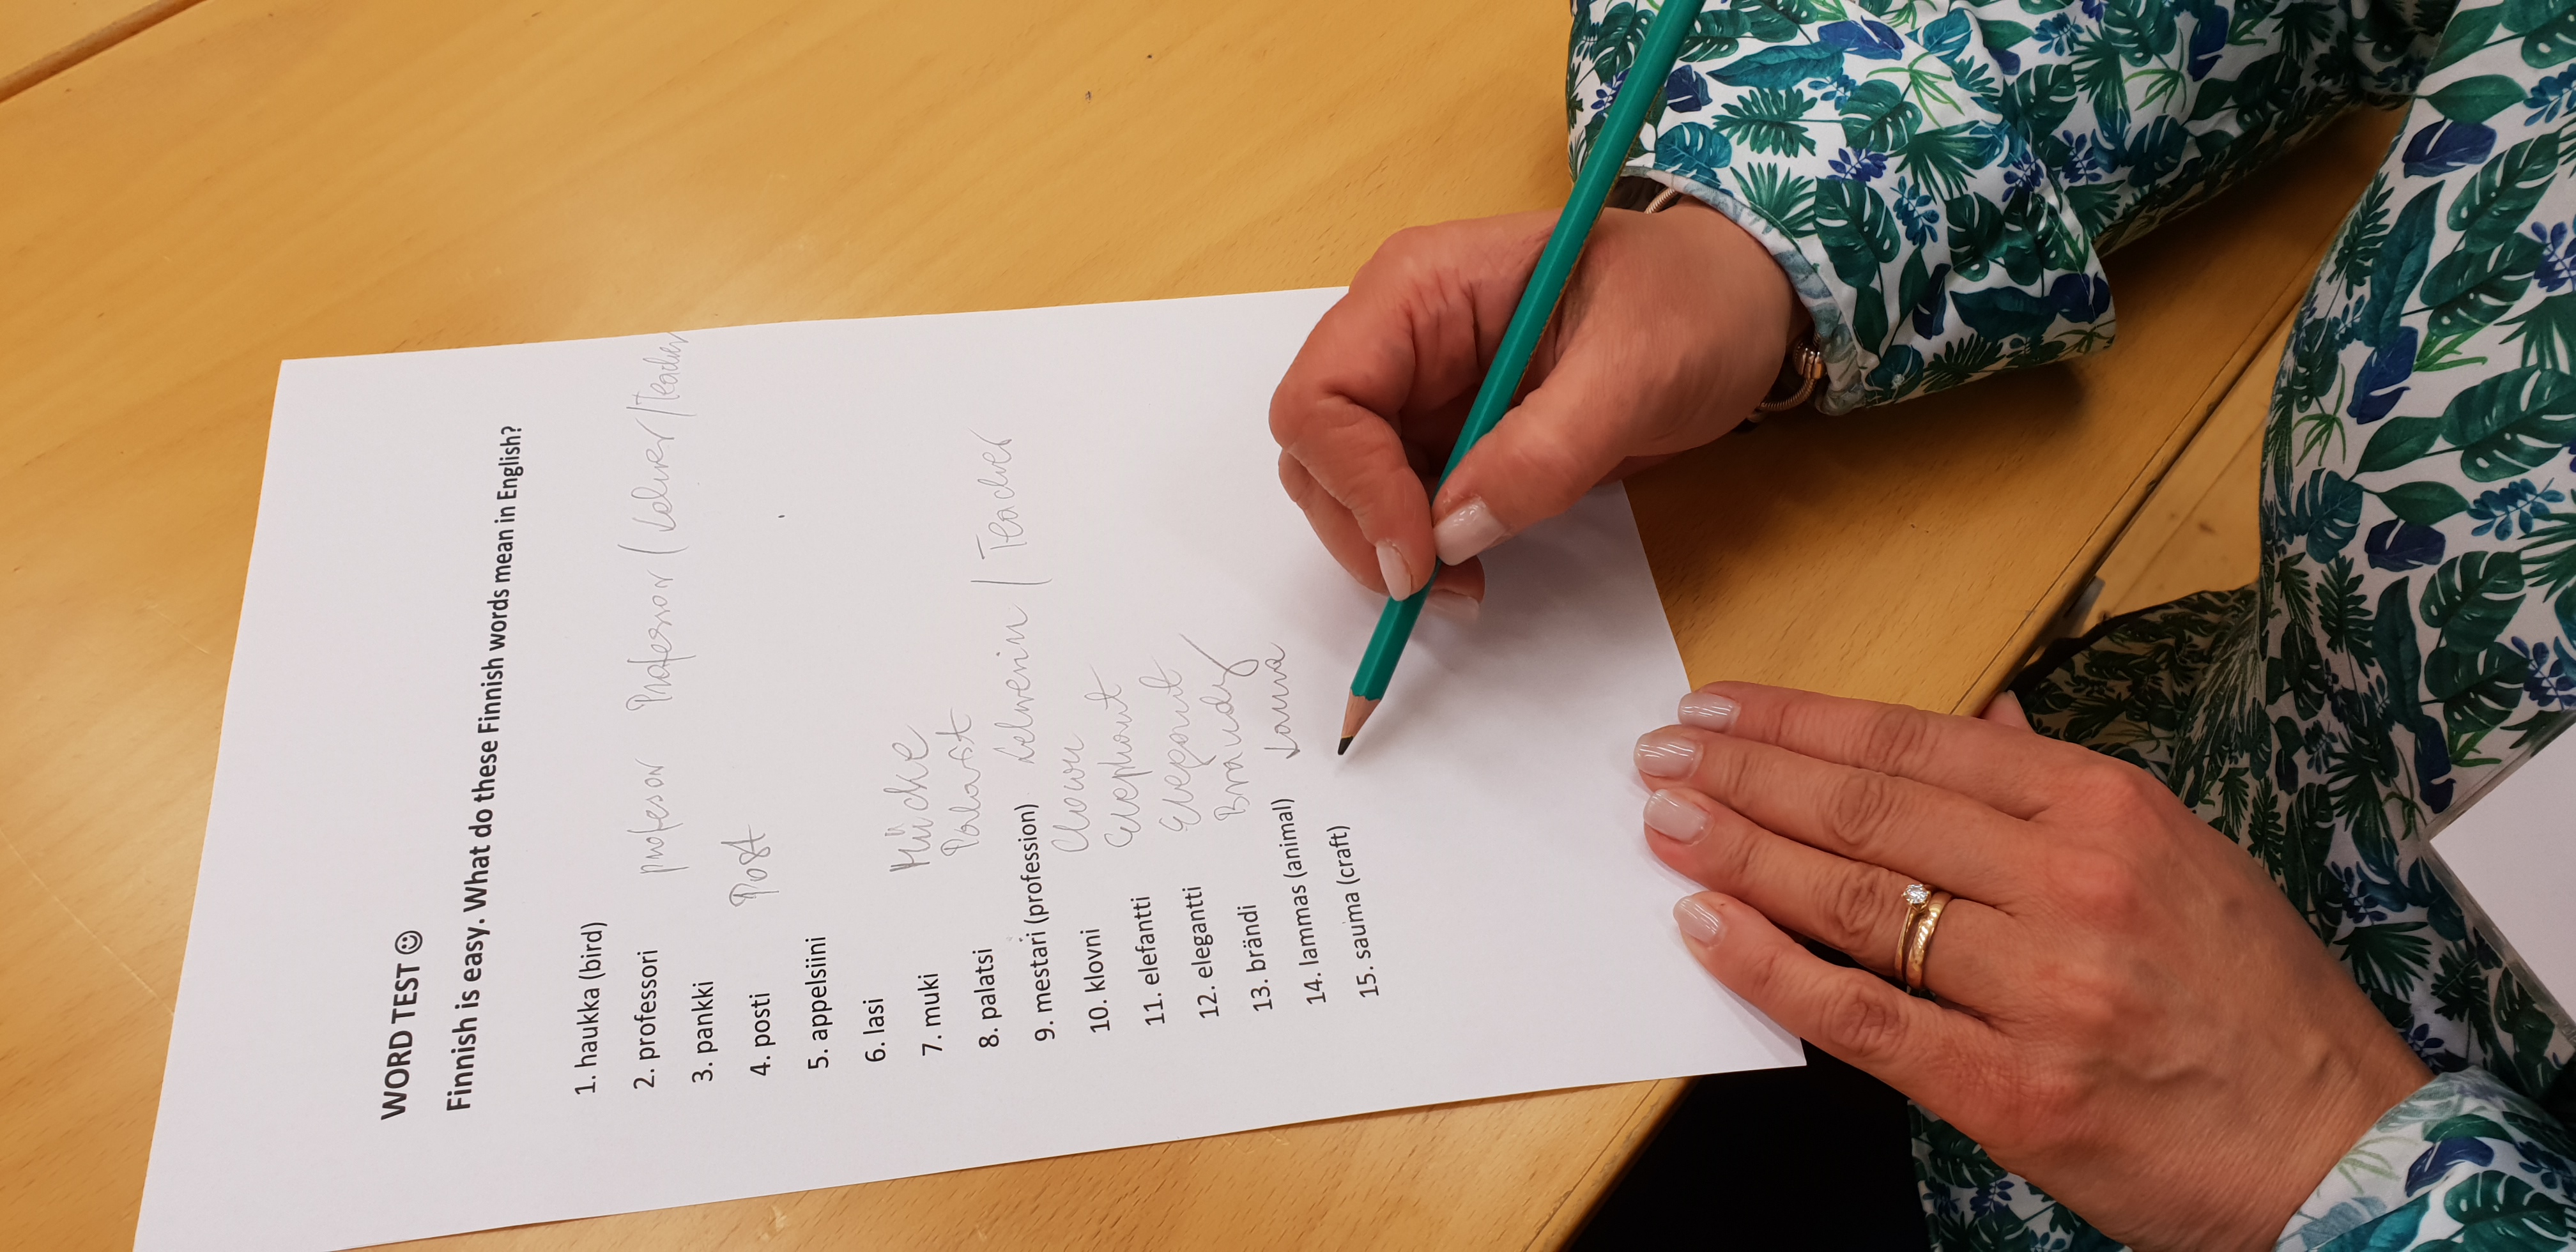 WORD TEST ☺
Finnish is easy. What do these Finnish words mean in English?
1. haukka (bird)
2. professori profesor Professor / Lehrer / Teacher
3. pankki
4. posti Post
5. appelsiini
6. lasi
7. muki Mücke
8. palatsi Palast
9. mestari (profession) Lehrerin / Teacher
10. klovni Clown
11. elefantti Elephant
12. elegantti Elegant
13. brändi Brandy
14. lammas (animal) Lama
15. sauma (craft)